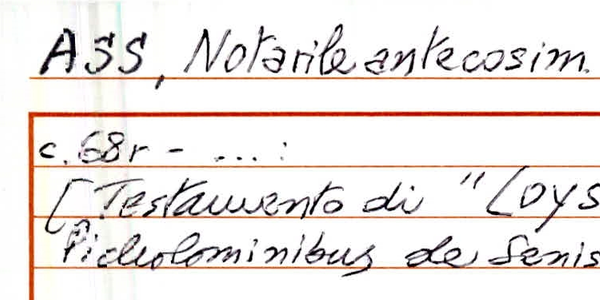 ASS, Notarile antecosim.
c. 68r - ... :
[Testamento di "Loys
Picholominibus de Senis